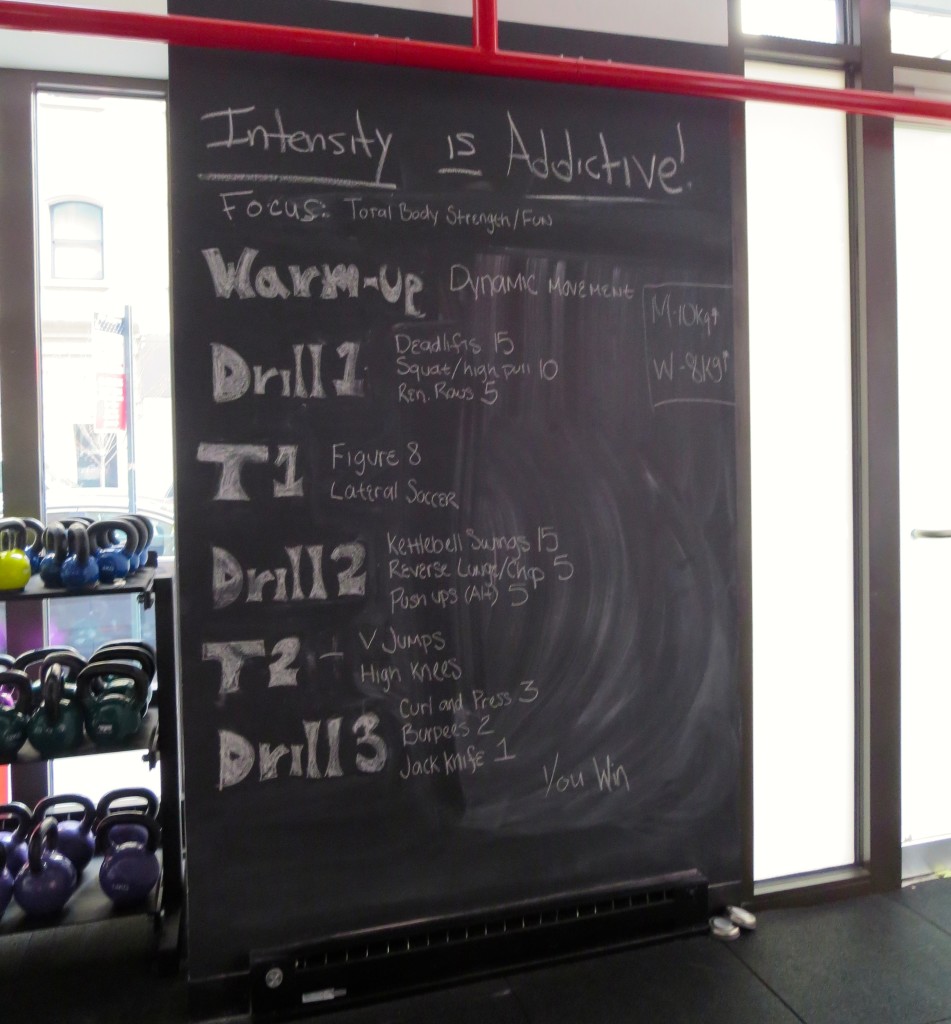 Intensity is Addictive!
Focus: Total Body Strength/Fun
Warm-up Dynamic Movement
M-10kg↑
W-8kg↑
Drill 1 Deadlifts 15
Squat/high pull 10
Ren. Rows 5
T1 Figure 8
Lateral Soccer
Drill 2 Kettlebell Swings 15
Reverse Lunge/Chop 5
Push ups (Alt) 5
T2 - V Jumps
High Knees
Drill 3 Curl and Press 3
Burpees 2
Jack Knife 1
You Win